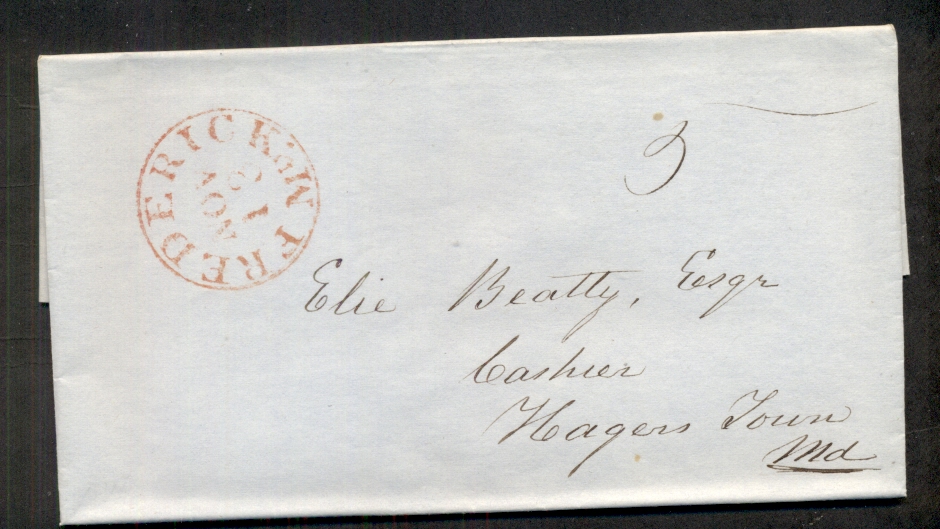 FREDERICKTOWN Md.
NOV
5
Elie Beatty, Esqr
Cashier
Hagers Town
Md